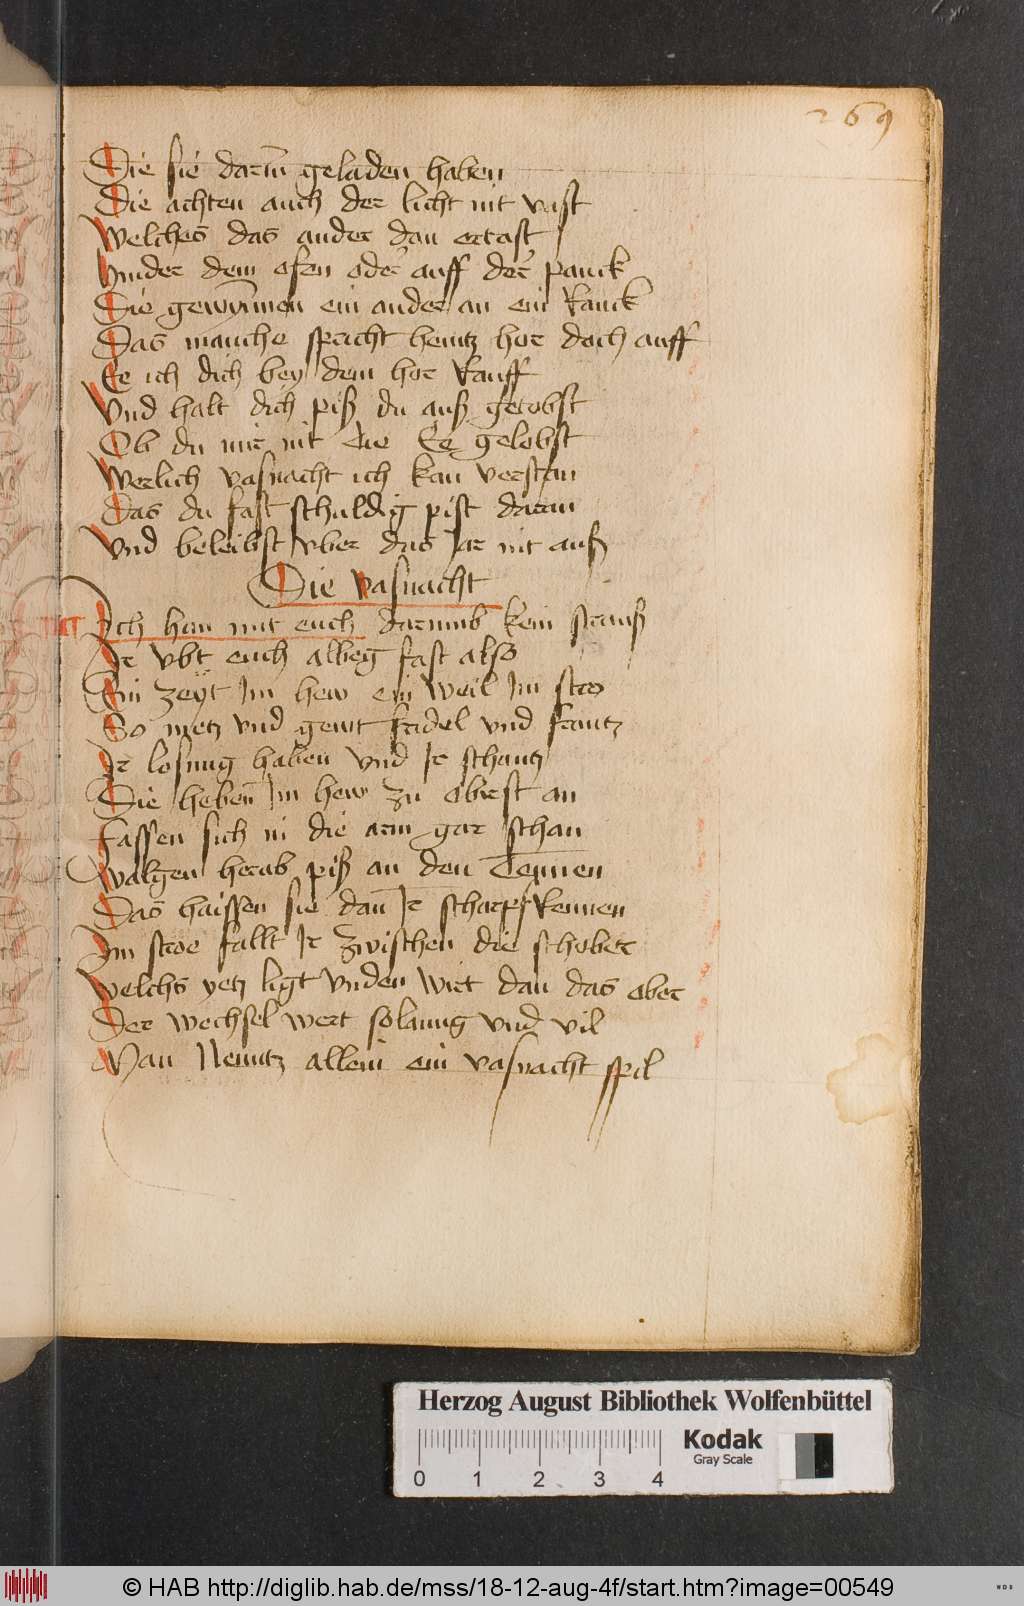 269
Die sie darin geladen haben
Die achten auch der licht nit vast
Welches das ander dan ertast
Hinder dem ofen oder auff der panck
Die gewynnen ein ander an ein Ranck
Das manche spricht heintz hor doch auff
Ee ich dich bey dem hor Rauff
Vnd halt dich piß du auß getobst
Ob du mir nit die Ee gelobst
Werlich vasnacht ich kan verstan
Das du fast schuldig pist daran
Vnd beleibst vber das Jar nit auß
Die vasnacht
Ich han mit euch darumb kein strauß
Ir vbt euch albeg fast also
Ein zeyt Im hew ein weil Im stro
So metz vnd gewt fridel vnd frantz
Ir losung haben vnd Ir schantz
Die heben Im hew zu obrest an
Fassen sich in die arm gar schan
Walgen herab piß an den Tennen
Das haissen sie dan Ir scharpf Rennen
Im stroe fallt Ir zwischen die schober
Welchs yetz ligt vnden wirt dan das ober
Der wechsel wert so lanng vnd vil
Man Nenntz allein ein vasnacht spil
Herzog August Bibliothek Wolfenbüttel
Kodak
Gray Scale
0 1 2 3 4
© HAB http://diglib.hab.de/mss/18-12-aug-4f/start.htm?image=00549